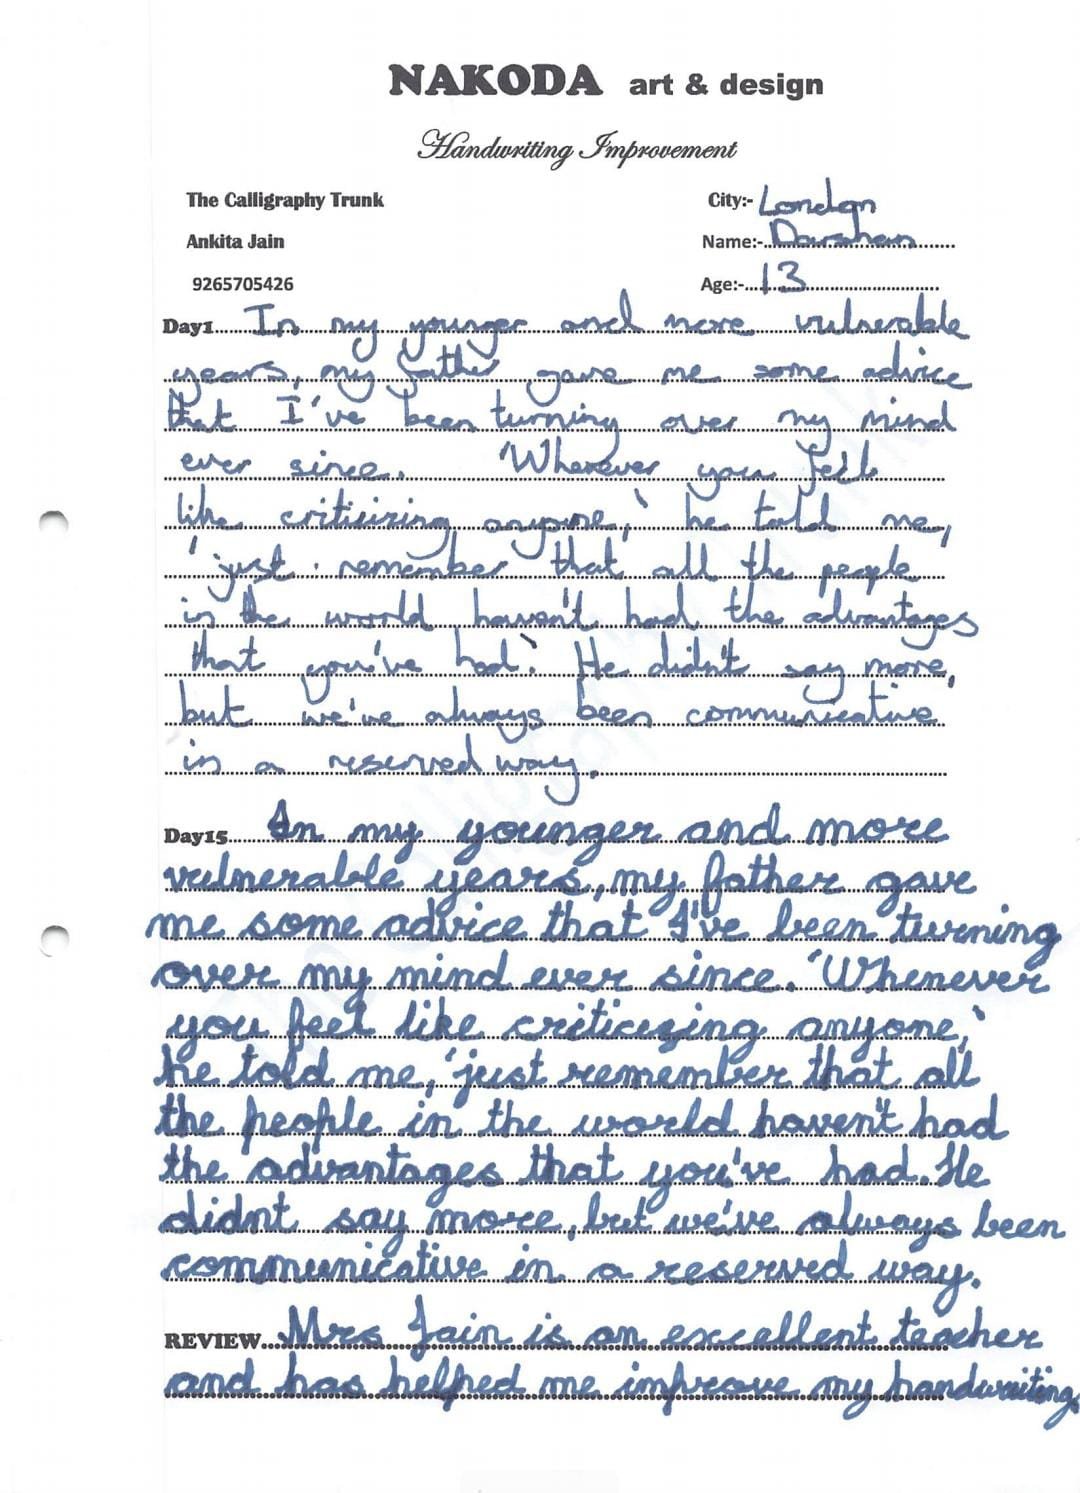 NAKODA art & design
Handwriting Improvement
The Calligraphy Trunk
City:- London
Ankita Jain
Name:- Darshan
9265705426
Age:- 13
Day1 In my younger and more vulnerable
years, my father gave me some advice
that I've been turning over my mind
ever since. 'Whenever you feel
like criticizing anyone,' he told me,
'just remember that all the people
in the world haven't had the advantages
that you've had.' He didn't say more,
but we've always been communicative
in a reserved way.
Day15 In my younger and more
vulnerable years, my father gave
me some advice that I've been turning
over my mind ever since. 'Whenever
you feel like criticizing anyone,'
he told me, 'just remember that all
the people in the world haven't had
the advantages that you've had. He
didnt say more, but we've always been
communicative in a reserved way.
REVIEW Mrs Jain is an excellent teacher
and has helped me improve my handwriting.